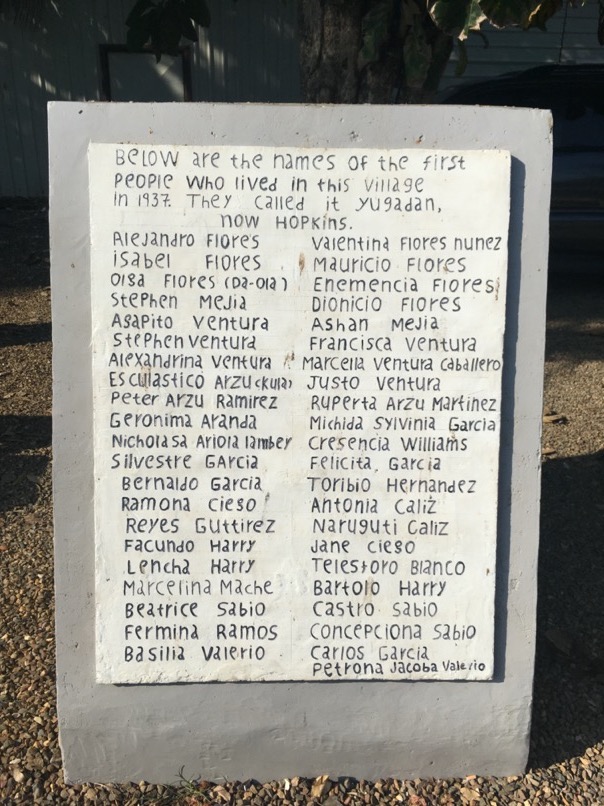 BELOW are the names of the first
PEOPLE who lived in this village
in 1937. They called it yugadan,
now HOPKINS.
Alejandro Flores Valentina Flores nunez
isabel Flores Mauricio Flores
Olga Flores (Da-Ola) Enemencia Flores
Stephen Mejia Dionicio Flores
Agapito Ventura Ashan Mejia
Stephen Ventura Francisca Ventura
Alexandrina Ventura Marcella Ventura Caballero
Esculastico Arzu (Kula) Justo Ventura
Peter Arzu Ramirez Ruperta Arzu Martinez
Geronima Aranda Michida Sylvinia Garcia
Nicholasa Ariola lambey Cresencia Williams
Silvestre Garcia Felicita, Garcia
Bernaldo Garcia Toribio Hernandez
Ramona Ciego Antonia Caliz
Reyes Guttirez Naruguti Caliz
Facundo Harry Jane Ciego
Lencha Harry Telestoro Blanco
Marcelina Mache Bartolo Harry
Beatrice Sabio Castro Sabio
Fermina Ramos Concepciona Sabio
Basilia Valerio Carlos Garcia
Petrona Jacoba Valerio